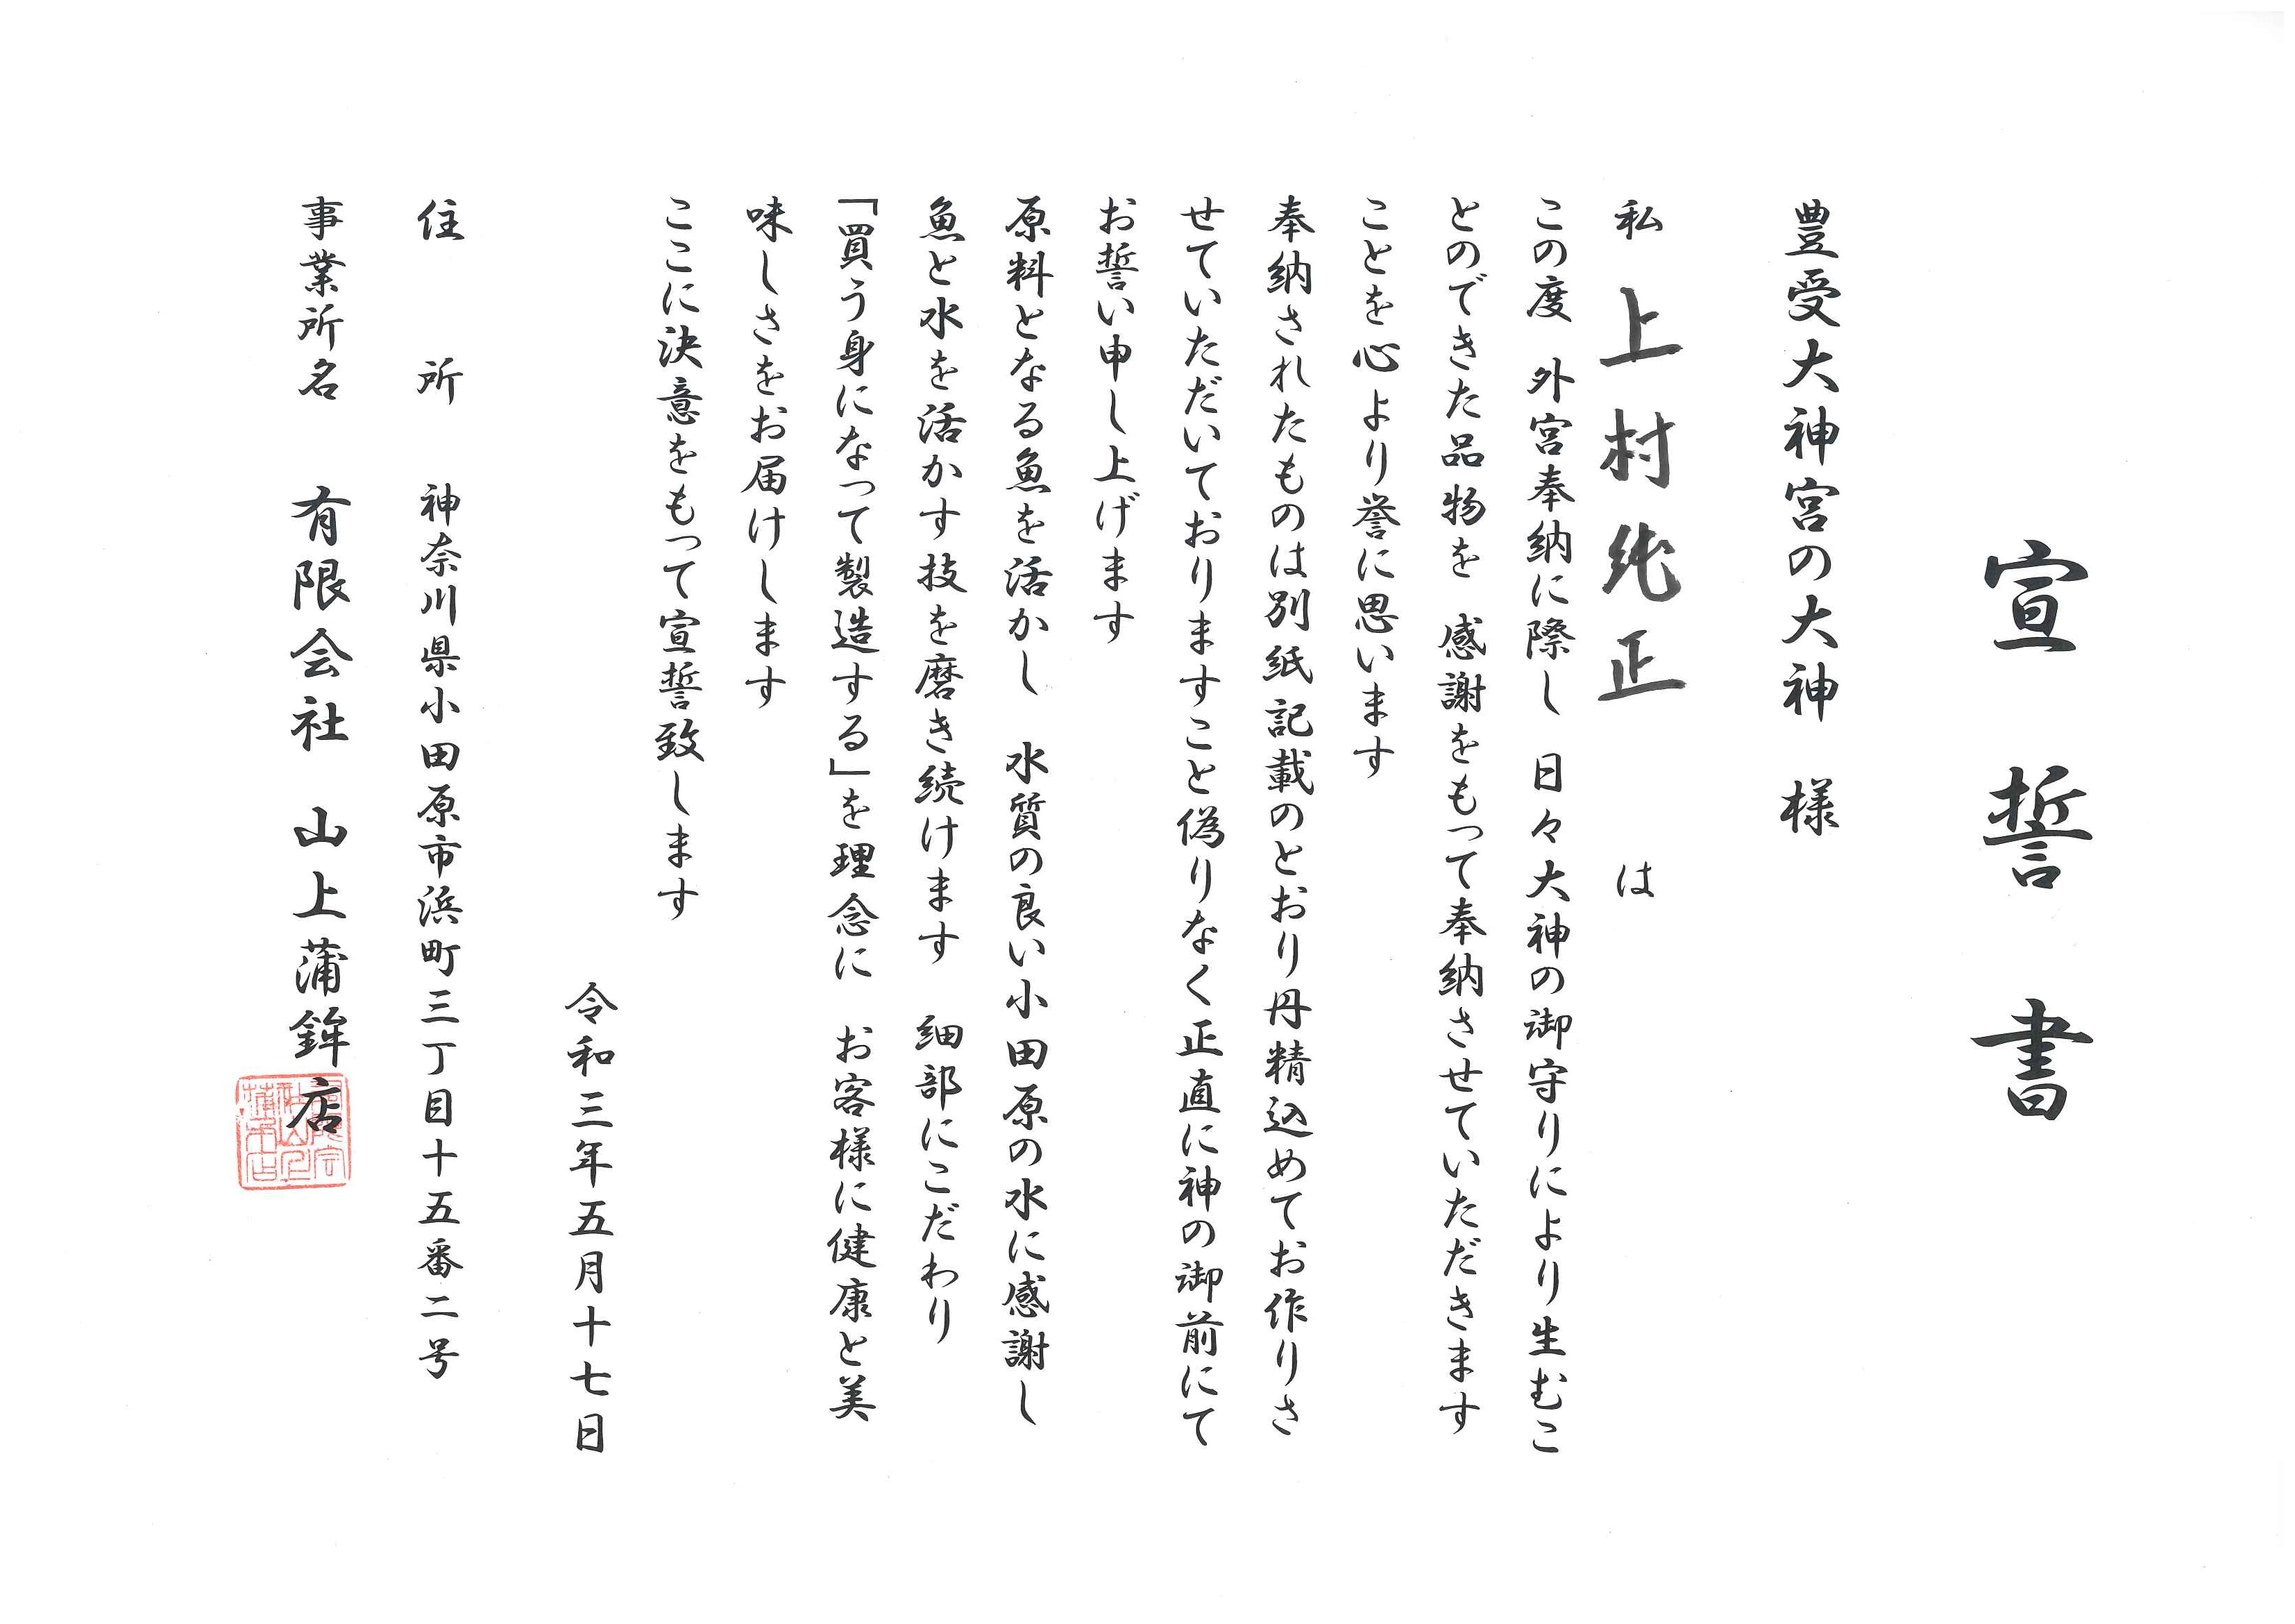 宣誓書
豊受大神宮の大神　様
私　上村純正　は
この度　外宮奉納に際し　日々大神の御守りにより生むこ
とのできた品物を　感謝をもって奉納させていただきます
ことを心より誉に思います
奉納されたものは別紙記載のとおり丹精込めてお作りさ
せていただいておりますこと偽りなく正直に神の御前にて
お誓い申し上げます
原料となる魚を活かし　水質の良い小田原の水に感謝し
魚と水を活かす技を磨き続けます　細部にこだわり
「買う身になって製造する」を理念に　お客様に健康と美
味しさをお届けします
ここに決意をもって宣誓致します
令和三年五月十七日
住所　神奈川県小田原市浜町三丁目十五番二号
事業所名　有限会社　山上蒲鉾店